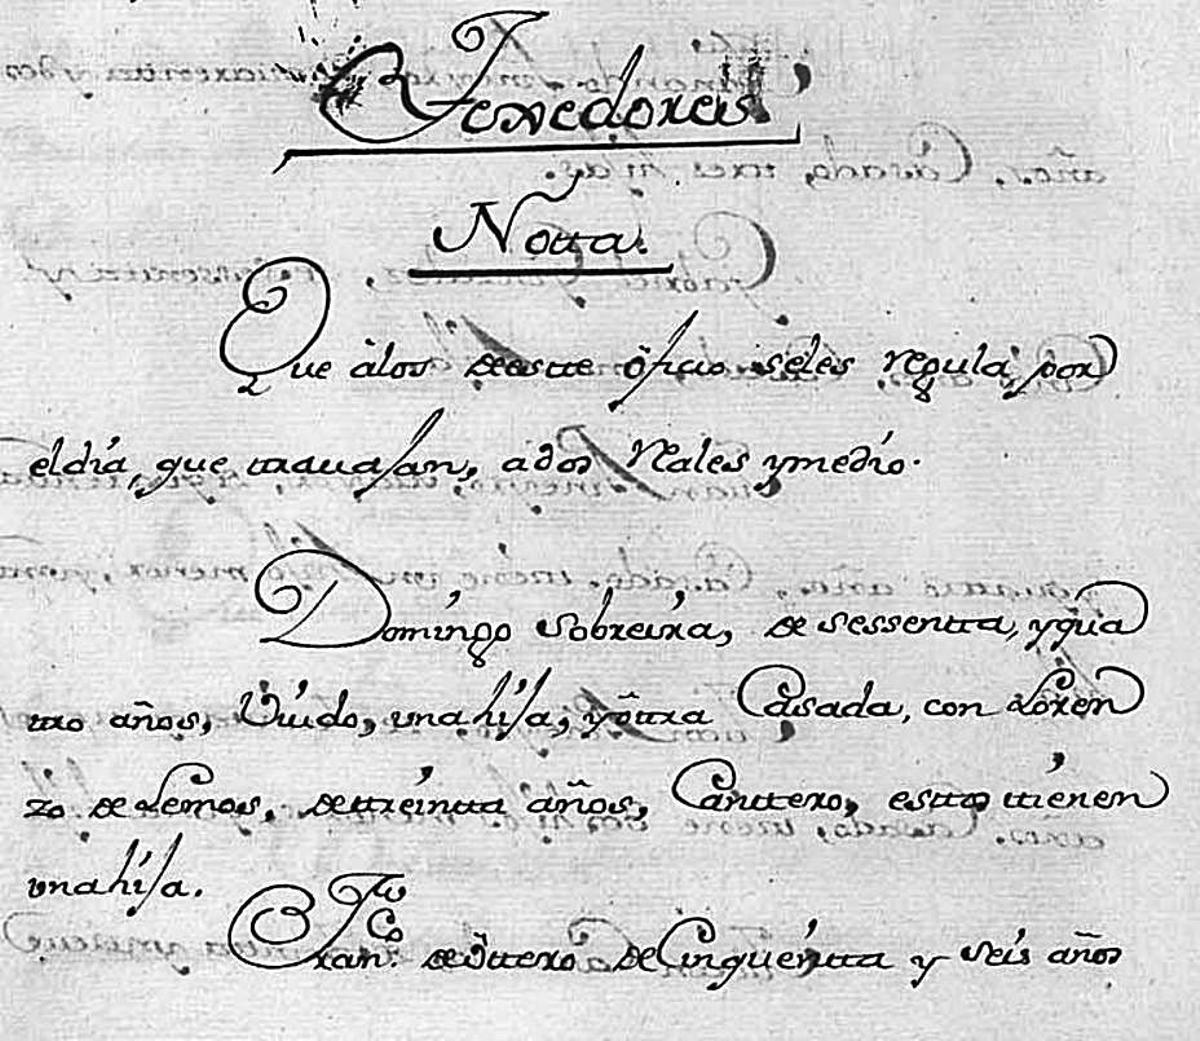 Texedores
Notta.
Que àlos deestte ôficio seles regula por
eldia, que trauajan, ados reales ymedio.
Domingo Sobreira, de sessentta, yqua
ttro años, Viudo, vnahija, yôttra Casada, con Loren
zo de Lemos, dettreintta años, Canttero, esttos ttienen
vnahija.
Fran.co deôttero de Cinquentta y seis años